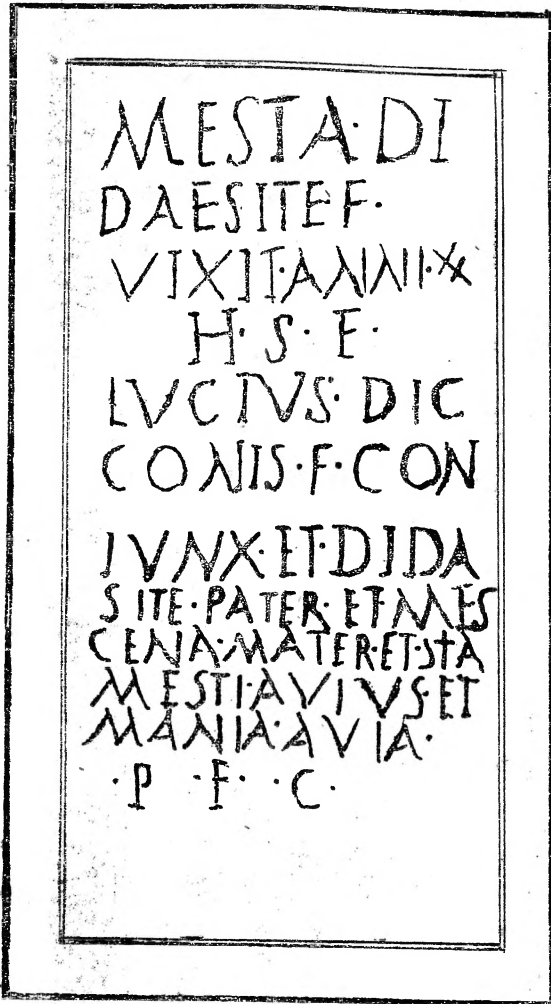 MESTA·DI
DAESITE F·
VIXIT·ANNI·XX
H·S·E·
LVCIVS·DIC
CONIS·F·CON
IVNX·ET·DIDA
SITE·PATER·ET·MES
CENA·MATER·ET·STA
MESTI·AVIVS·ET
MANIA·AVIA·
·P·F·C·